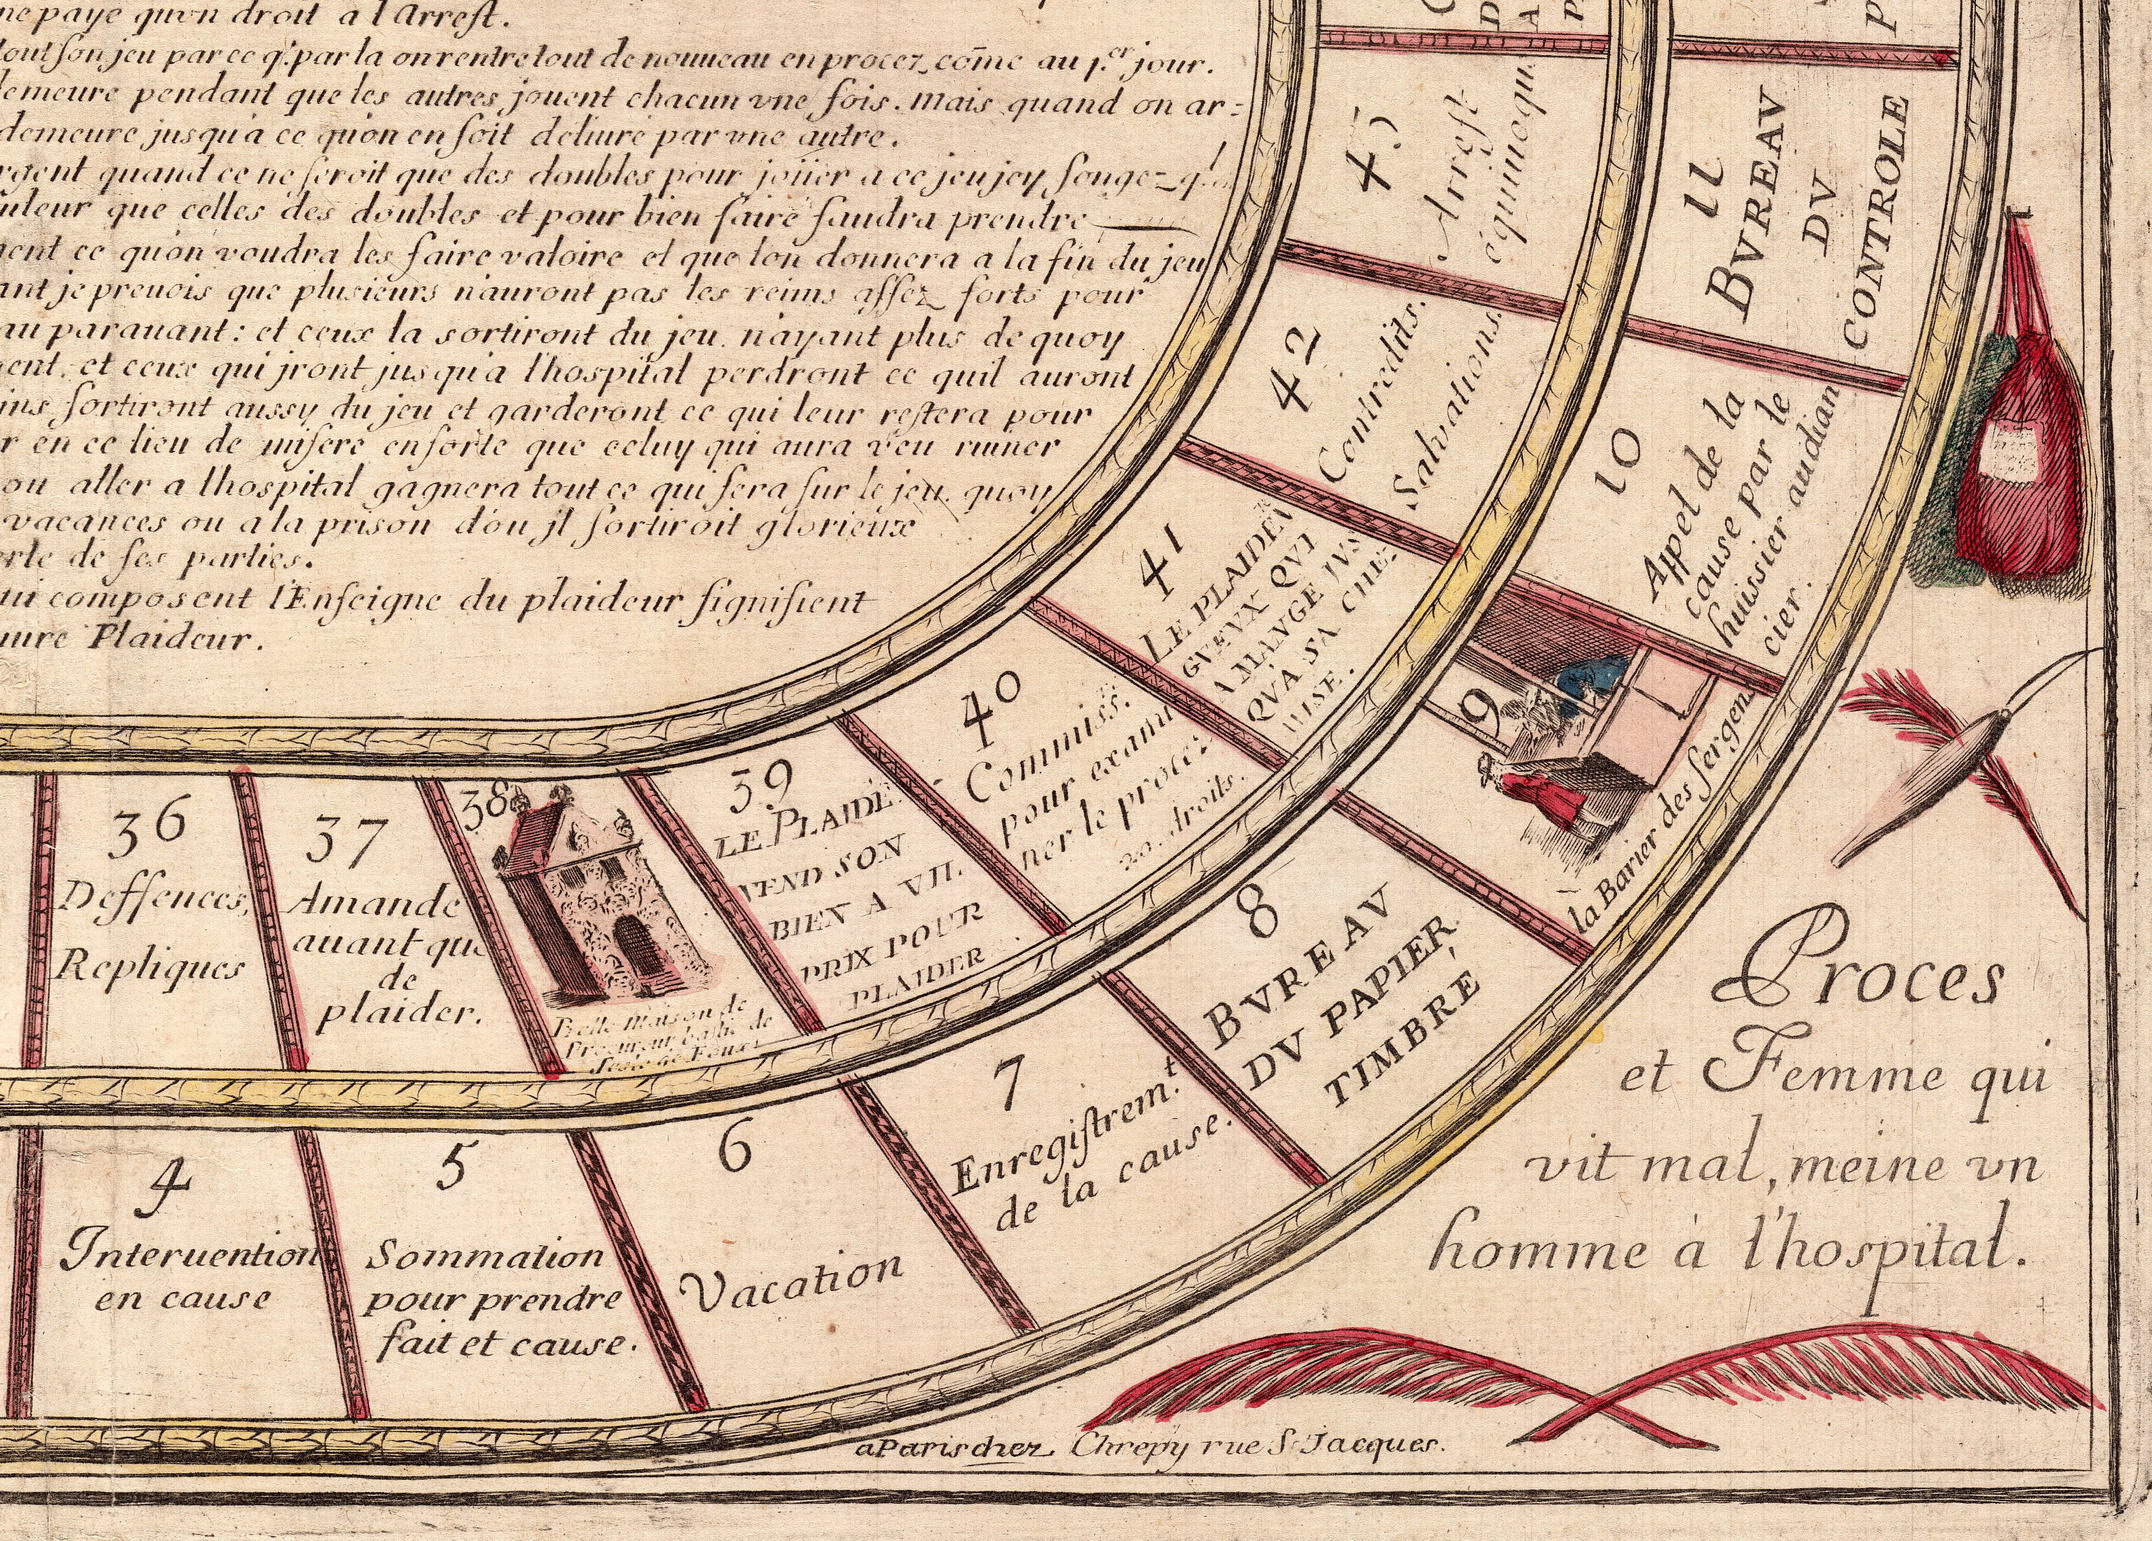 ne paye qu'vn droit a l'Arrest.
tout son jeu par ce q'. par la on rentre tout de nouueau en procez, cõme au 1.er jour.
demeure pendant que les autres jouent chacun vne fois. Mais quand on ar=
demeure jusqu'a ce qu'on en soit deliuré par vne autre.
rgent quand ce ne seroit que des doubles pour joüer a ce jeu jey songez q'
uleur que celles des doubles et pour bien faire faudra prendre
ment ce qu'on voudra les faire valoire et que lon donnera a la fin du jeu
ant je preuois que plusieurs n'auront pas les reins assez forts pour
au parauant : et ceux la sortiront du jeu. n'ayant plus de quoy
ent. et ceux qui jront jusqu'a l'hospital perdront ce quil auront
ins sortiront aussy du jeu et garderont ce qui leur restera pour
r en ce lieu de misere ensorte que celuy qui aura veu ruiner
ou aller a lhospital gagnera tout ce qui sera sur le jeu, quoy
vacances ou a la prison d'ou jl sortiroit glorieux
rte de ses parties.
ui composent l'Enseigne du plaideur signifient
uure Plaideur.
43
Arrest
équiuoque
42
Contredits.
Salvations.
41
LE PLAIDEVR
GVEVX QVI
A MANGE JVS
QVA SA CHE
MISE.
40
Commiss.
pour exami
ner le procez
20. droits.
39
LE PLAIDE.
VEND SON
BIEN A VIL
PRIX POUR
PLAIDER
38
Belle Maison de
Procureur bastie de
37
Amande
auant que
de
plaider.
36
Deffences,
Repliques
11
BVREAV
DV
CONTROLE
10
Appel de la
cause par le
huissier audian
cier.
9
à la Barier des sergens
8
BVREAV
DV PAPIER
TIMBRÉ
7
Enregistrem.t
de la cause.
6
Vacation
5
Sommation
pour prendre
fait et cause.
4
Interuention
en cause
Proces
et Femme qui
vit mal, meine vn
homme à l'hospital.
a Paris chez Chrepy rue S. Jacques.